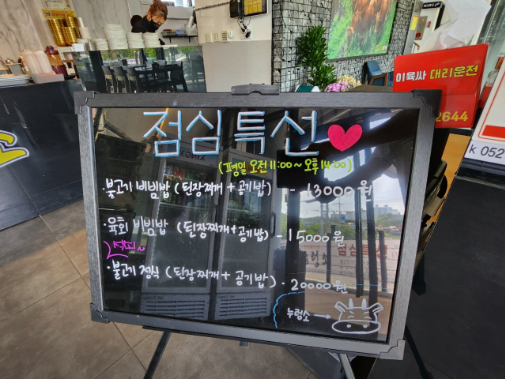 점심특선
(평일 오전 11:00 ~ 오후 14:00)
불고기 비빔밥 (된장찌개 + 공기밥) - 13000원
육회 비빔밥 (된장찌개+공기밥) - 15000원
·불고기 정식 (된장찌개 + 공기밥) · 20000원
누렁소 →
이육싸 대리운전
2644
k 052